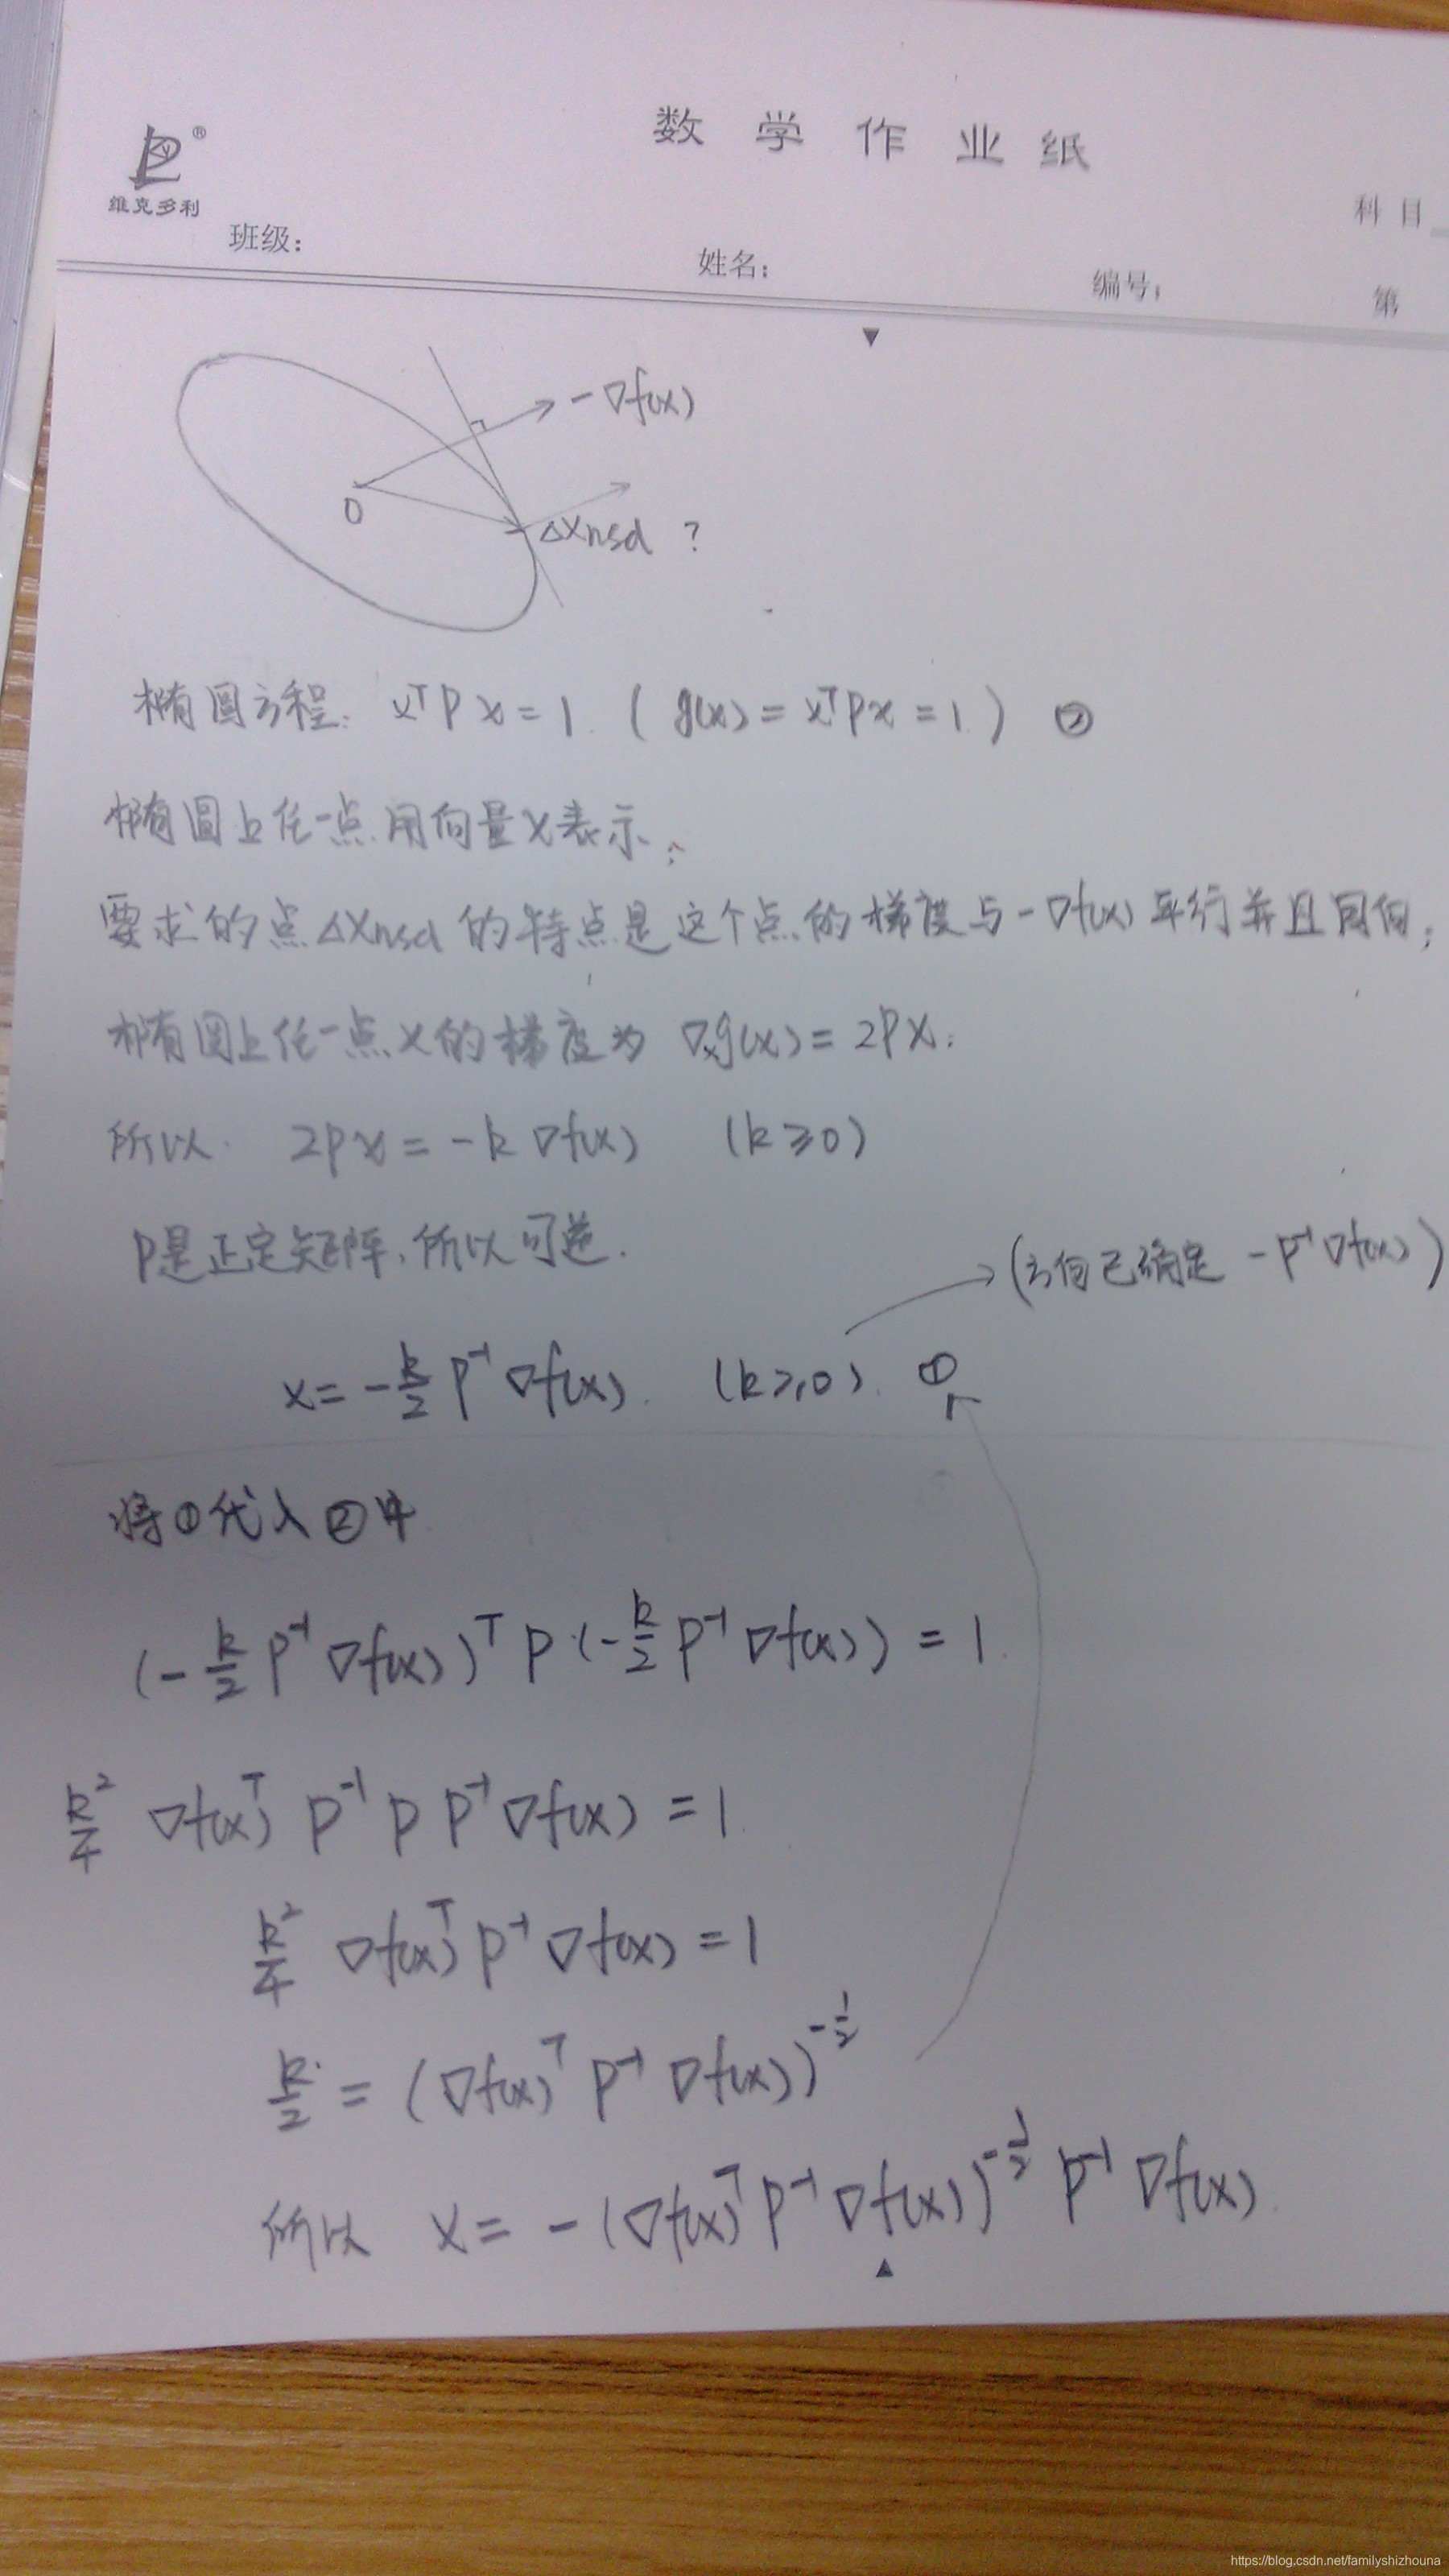 数学作业纸
®
维克多利
科目
班级：
姓名：
编号：
第
-∇f(x)
0
Δxnsd ?
椭圆方程: xᵀPx=1. (g(x)=xᵀPx=1.) ②
椭圆上任一点用向量x表示;
要求的点Δxnsd的特点是这个点的梯度与-∇f(x)平行并且同向;
椭圆上任一点x的梯度为 ∇ₓg(x)=2Px.
所以. 2Px=-k∇f(x) (k≥0)
P是正定矩阵,所以可逆.
(方向已确定 -P⁻¹∇f(x))
x=-k/2 P⁻¹∇f(x). (k≥0). ①
将①代入②中
(-k/2 P⁻¹∇f(x))ᵀ P·(-k/2 P⁻¹∇f(x))=1.
k²/4 ∇f(x)ᵀ P⁻¹ P P⁻¹∇f(x)=1.
k²/4 ∇f(x)ᵀ P⁻¹∇f(x)=1
k/2=(∇f(x)ᵀ P⁻¹ ∇f(x))^(-1/2)
所以 x=-(∇f(x)ᵀ P⁻¹∇f(x))^(-1/2) P⁻¹∇f(x).
https://blog.csdn.net/familyshizhouna